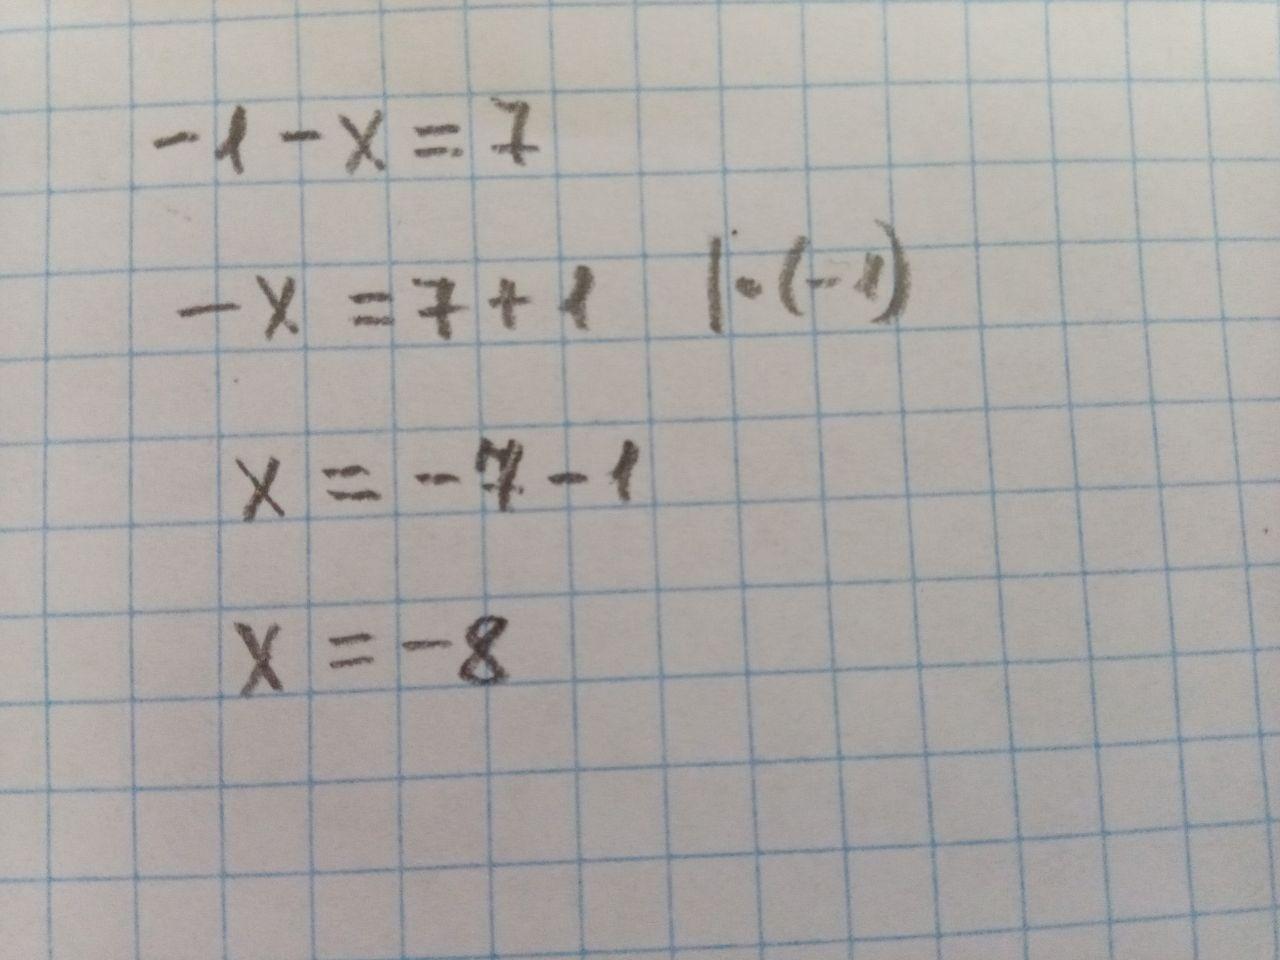 -1 - x = 7
-x = 7 + 1 |·(-1)
x = -7 - 1
x = -8